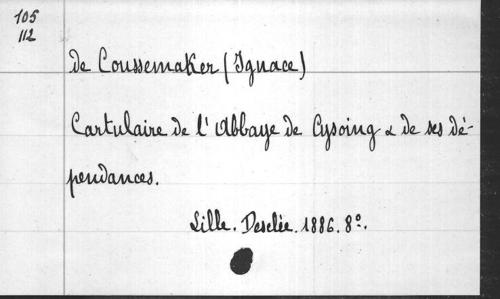 105
112
de Coussemaker (Ignace)
Cartulaire de l'Abbaye de Cysoing & de ses dé-
pendances.
Lille. Desclée. 1886. 8º.